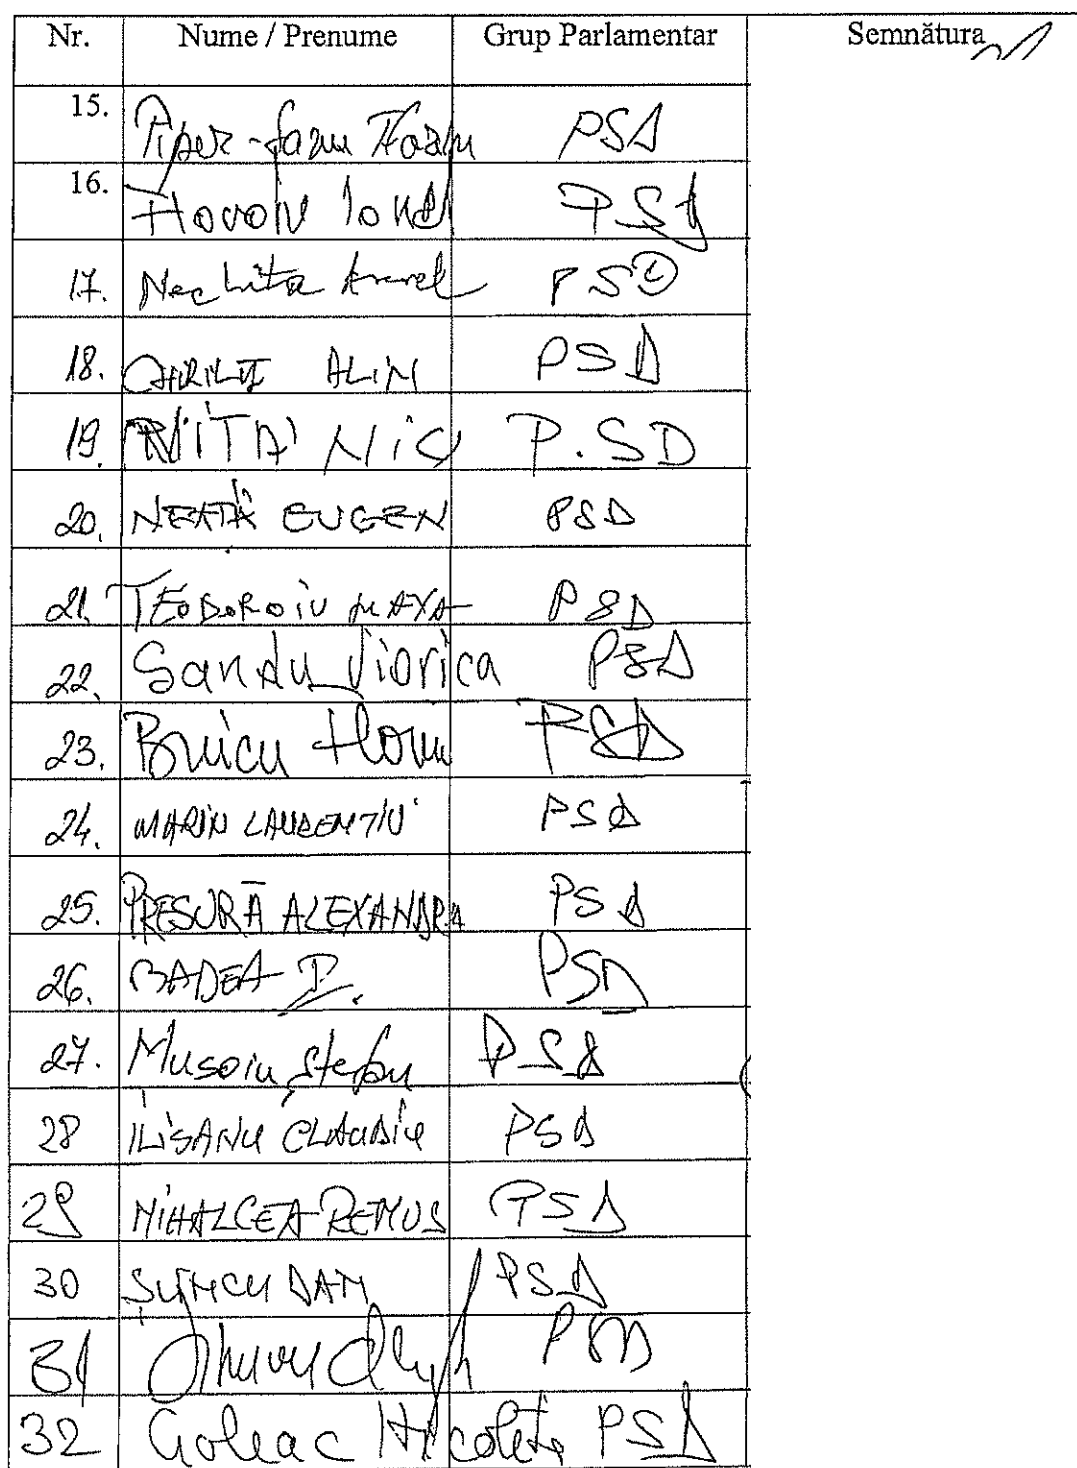 Nr. Nume / Prenume Grup Parlamentar Semnătura
15. Piper-Savu Florin PSD
16. Floroiu Ionel PSD
17. Nechita Aurel PSD
18. CHIRILĂ ALIN PSD
19. NIȚĂ NIC P.SD
20. NEAȚĂ EUGEN PSD
21. TEODOROIU MAYA PSD
22. Sandu Viorica PSD
23. Buicu Florin PSD
24. MARIN LAURENTIU PSD
25. PRESURĂ ALEXANDRA PSD
26. BADEA PSD
27. Musoiu Ștefan PSD
28 ILIȘANU CLAUDIU PSD
29 MIHALCEA REMUS PSD
30 ȘUNCU DAN PSD
31 PSD
32 Goleac Nicoleta PSD